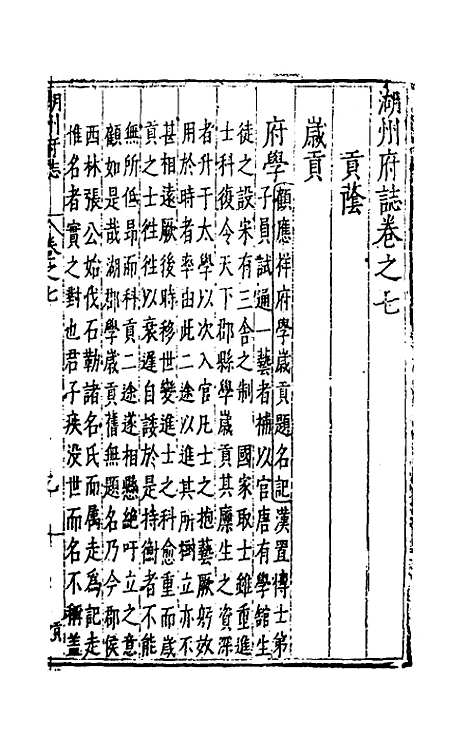 湖州府誌卷之七
貢蔭
歲貢
府學
顧應祥府學歲貢題名記漢置博士弟
子員試通一藝者補以官唐有學館生
徒之設宋有三舍之制　國家取士雖重進
士科復令天下郡縣學歲貢其廩生之資深
者升于太學以次入官凡士之抱藝厥躬效
用於時者率由此二途以進其所樹立亦不
甚相遠厥後時移世變進士之科愈重而歲
貢之士往往以衰遲自諉於是持衡者不能
無所低昂而科貢二途遂相懸絕吁立之意
顧如是哉湖郡學歲貢舊無題名乃今郡侯
西林張公始伐石勒諸名氏而属走爲記走
惟名者實之對也君子疾没世而名不稱蓋
湖州府志
卷之七